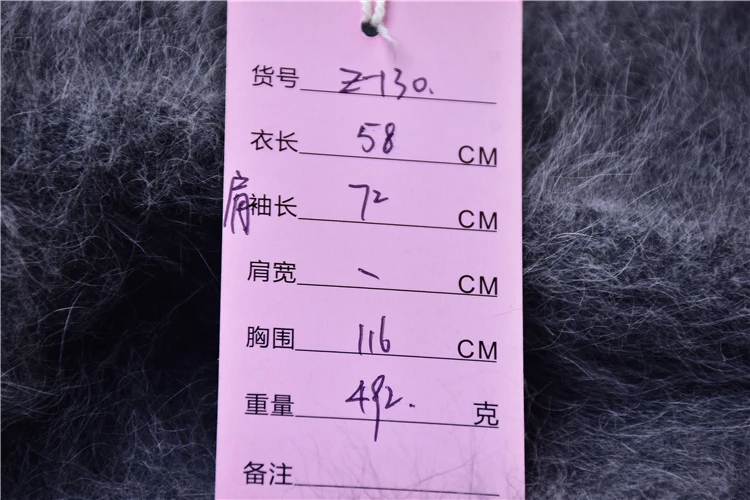 货号 Z-130.
衣长 58 CM
肩袖长 72 CM
肩宽 - CM
胸围 116 CM
重量 492. 克
备注